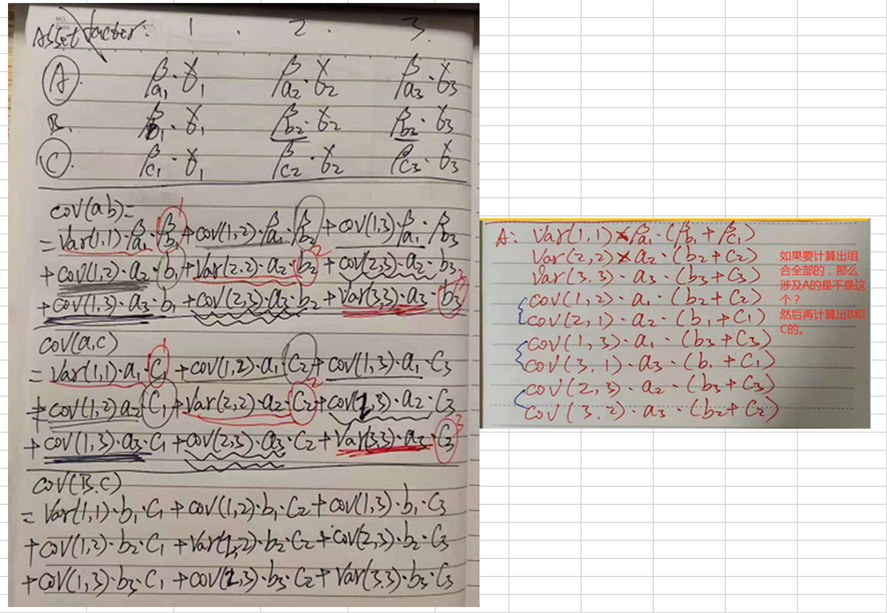 Asset factor: 1. 2. 3.
A. βa1·γ1 βa2·γ2 βa3·γ3
B. βb1·γ1 βb2·γ2 βb2·γ3
C. βc1·γ1 βc2·γ2 βc3·γ3
cov(ab)=
=Var(1,1)·βa1·βb1+cov(1,2)·βa1·βb2+cov(1,3)·βa1·βb3
+cov(1,2)·a2·b1+Var(2,2)·a2·b2+cov(2,3)·a2·b3
+cov(1,3)·a3·b1+cov(2,3)·a3·b2+Var(3,3)·a3·b3
cov(a,c)
=Var(1,1)·a1·C1+cov(1,2)·a1·C2+cov(1,3)·a1·C3
+cov(1,2)a2·C1+Var(2,2)·a2·C2+cov(2,3)·a2·C3
+cov(1,3)·a3·C1+cov(2,3)·a3·C2+Var(3,3)·a3·C3
cov(B.C)
=Var(1,1)·b1·C1+cov(1,2)·b1·C2+cov(1,3)·b1·C3
+cov(1,2)·b2·C1+Var(2,2)·b2·C2+cov(2,3)·b2·C3
+cov(1,3)·b3·C1+cov(2,3)·b3·C2+Var(3,3)·b3·C3
A: Var(1,1)×βa1·(βb1+βc1)
Var(2,2)×a2·(b2+C2)
Var(3,3)·a3·(b3+C3)
cov(1,2)·a1·(b2+C2)
cov(2,1)·a2·(b1+C1)
cov(1,3)·a1·(b3+C3)
cov(3,1)·a3·(b1+C1)
cov(2,3)·a2·(b3+C3)
cov(3.2)·a3·(b2+C2)
如果要计算出组
合全部的，那么
涉及A的是不是这
个？
然后再计算出B和
C的。